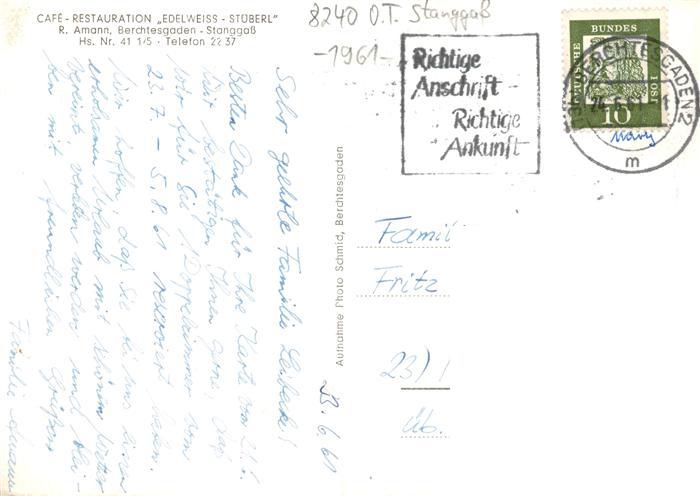 CAFÉ - RESTAURATION „EDELWEISS - STÜBERL"
R. Amann, Berchtesgaden - Stanggaß
Hs. Nr. 41 1/5 · Telefon 22 37
8240 O.T. Stanggaß
-1961-
Richtige
Anschrift
Richtige
Ankunft
DEUTSCHE BUNDESPOST
10
BERCHTESGADEN 2
24.6.61
m
23.6.61
Sehr geehrte Familie
Besten Dank für Ihre Karte vom 21.6.
Wir bestätigen Ihnen gerne, daß
wir für Sie 1 Doppelzimmer vom
23.7. - 5.8.61 reserviert haben.
Wir hoffen, daß Sie bei uns einen
erholsamen Urlaub mit schönem Wetter
vereint verleben werden und blei-
ben mit freundlichen Grüßen
Familie Amann
Aufnahme Photo Schmid, Berchtesgaden
Famil
Fritz
23/1
Üb.